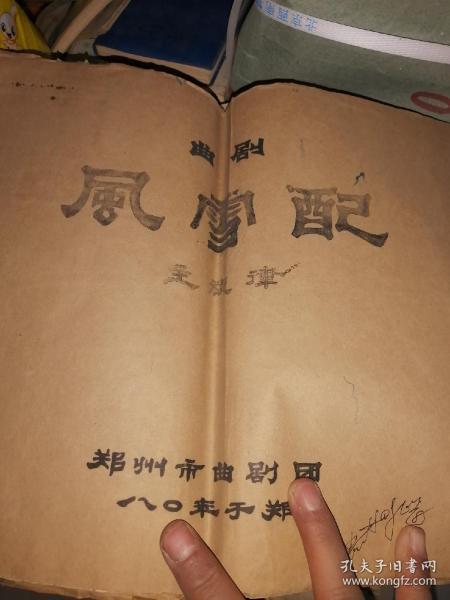 曲剧
風雪配
主旋律
郑州市曲剧团
八〇年于郑
北京西南物
孔夫子旧书网
www.kongfz.com